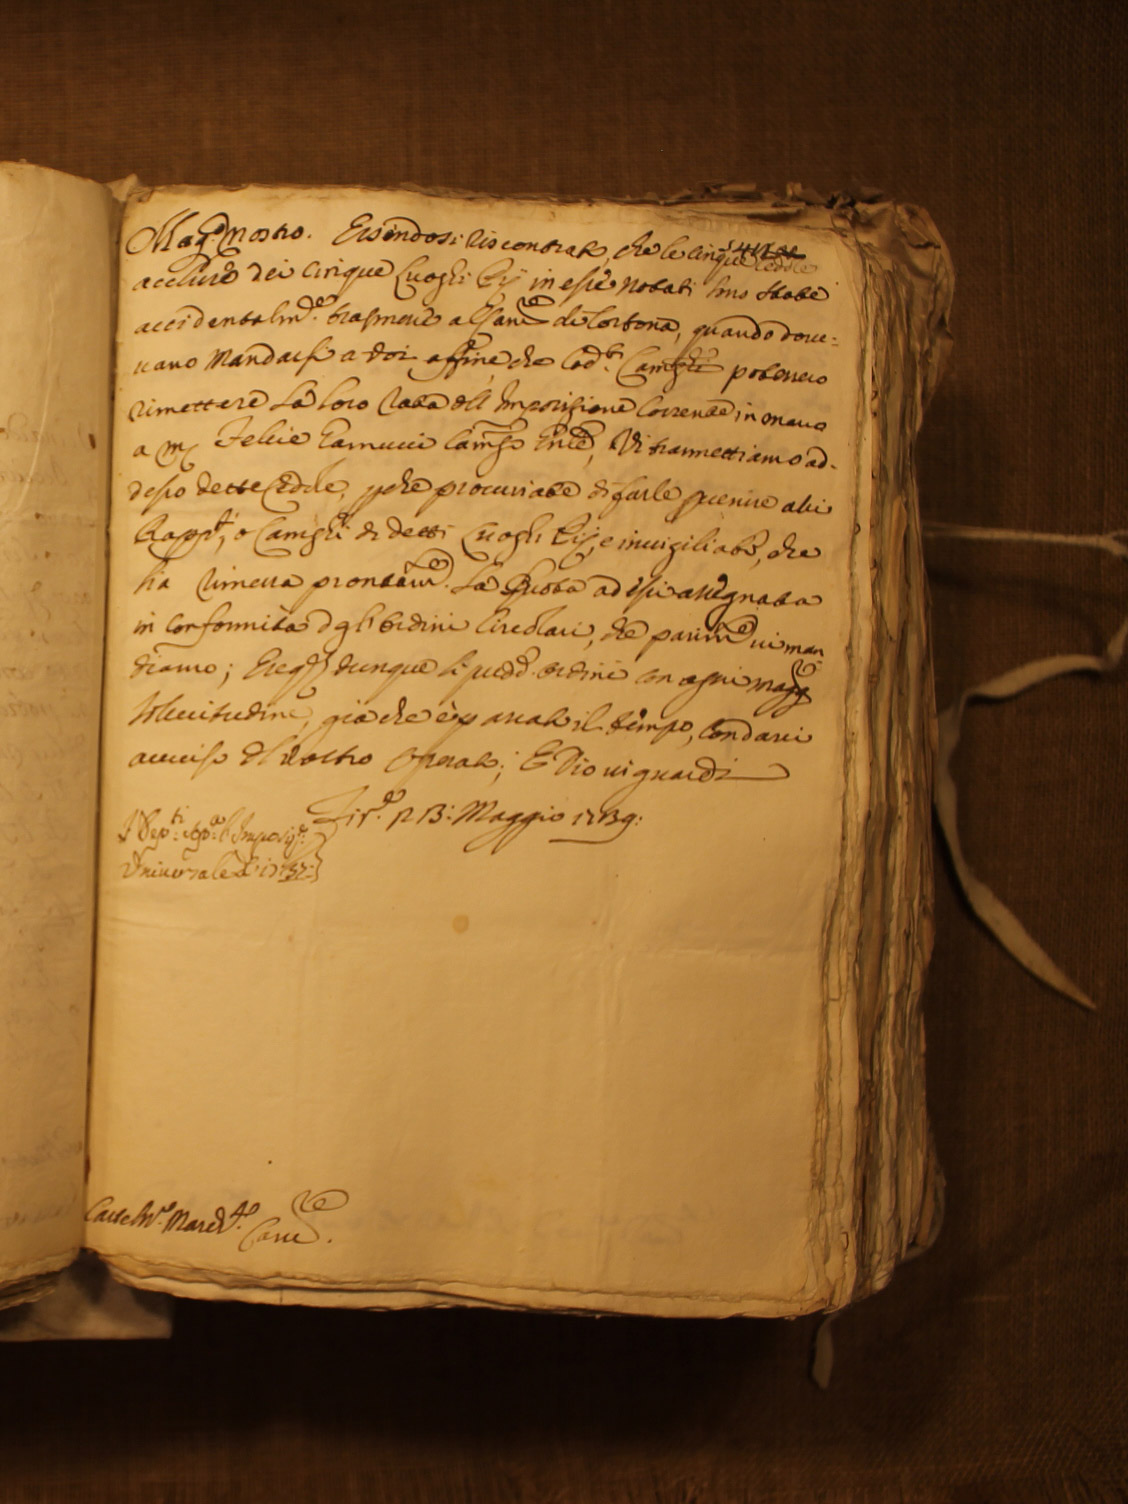 Mag.co Nostro. Essendosi riscontrato, che le cinque Cedole
accluse dei cinque Luoghi Pij in esse notati sono state
accidentalm.te trasmesse al Canc.re di Cortona, quando dove-
vano mandarsi a voi affine che cod.ti Camgħi potessero
rimettere la loro rata dell Imposizione corrente in mano
a m Felice Camgo
desso dette Cedole, pche procuriate di farle pvenire alli
Rapp.ti, o Camgħi di detti Luoghi Pij, e invigiliate, che
sia rimessa prontam.te la Quota ad essi assegnata
in conformità degl' ordini Circolari, che parim.te vi man
diamo; dunque li pred.i ordini con ogni magg.re
sollecitudine, già che è passato il tempo, con darci
avviso del vostro operato; E Dio vi guardi
Fir.e p.o 13: Maggio 1739:
I Dep.ti sop.a l' Imposiz.e
Universale d. 1737:
Canc.re